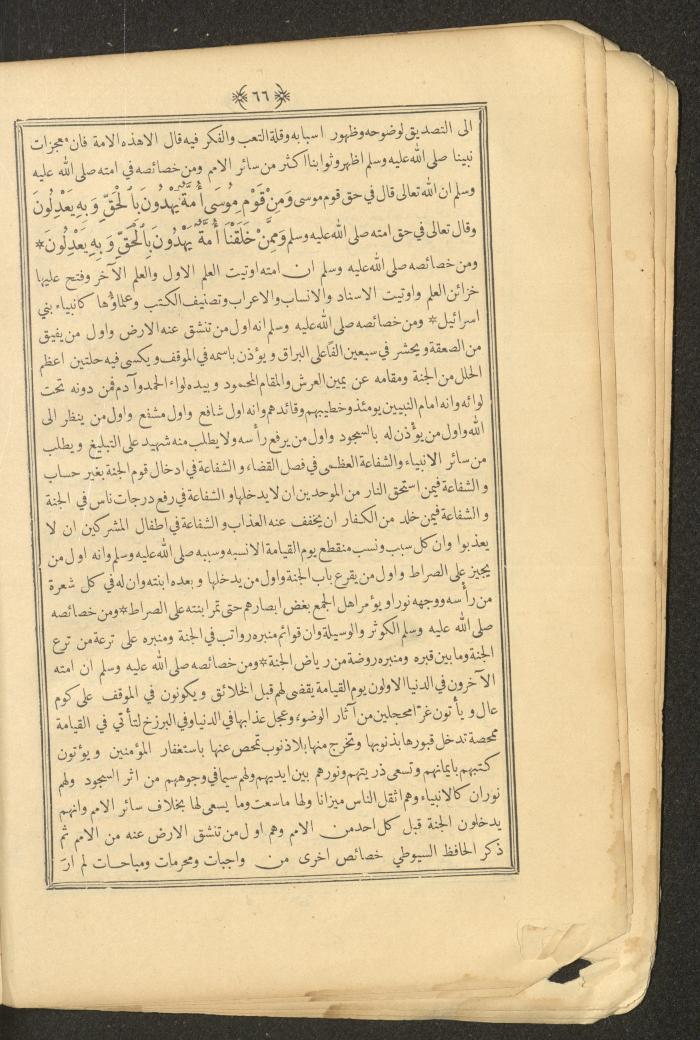 ٦٦
الى التصديق لوضوحه وظهور اسبابه وقلة التعب والفكر فيه قال الا هذه الامة فان معجزات
نبينا صلى الله عليه وسلم اظهر وثوابنا اكثر من سائر الامم ومن خصائصه في امته صلى الله عليه
وسلم ان الله تعالى قال في حق قوم موسى وَمِنْ قَوْمِ مُوسَى أُمَّةٌ يَهْدُونَ بِالْحَقِّ وَبِهِ يَعْدِلُونَ
وقال تعالى في حق امته صلى الله عليه وسلم وَمِمَّنْ خَلَقْنَا أُمَّةٌ يَهْدُونَ بِالْحَقِّ وَبِهِ يَعْدِلُونَ *
ومن خصائصه صلى الله عليه وسلم ان امته اوتيت العلم الاول والعلم الآخر وفتح عليها
خزائن العلم واوتيت الاسناد والانساب والاعراب وتصنيف الكتب وعلماؤها كانبياء بني
اسرائيل * ومن خصائصه صلى الله عليه وسلم انه اول من تنشق عنه الارض واول من يفيق
من الصعقة ويحشر في سبعين الفًا على البراق ويؤذن باسمه في الموقف ويكسى فيه حلتين اعظم
الحلل من الجنة ومقامه عن يمين العرش والمقام المحمود وبيده لواء الحمد وآدم فمن دونه تحت
لوائه وانه امام النبيين يومئذ وخطيبهم وقائدهم وانه اول شافع واول مشفع واول من ينظر الى
الله واول من يؤذن له بالسجود واول من يرفع رأسه ولا يطلب منه شهيد على التبليغ ويطلب
من سائر الانبياء والشفاعة العظمى في فصل القضاء والشفاعة في ادخال قوم الجنة بغير حساب
والشفاعة فيمن استحق النار من الموحدين ان لا يدخلها والشفاعة في رفع درجات ناس في الجنة
والشفاعة فيمن خلد من الكفار ان يخفف عنه العذاب والشفاعة في اطفال المشركين ان لا
يعذبوا وان كل سبب ونسب منقطع يوم القيامة الا نسبه وسببه صلى الله عليه وسلم وانه اول من
يجيز على الصراط واول من يقرع باب الجنة واول من يدخلها وبعده ابنته وان له في كل شعرة
من رأسه ووجهه نورا ويؤمر اهل الجمع بغض ابصارهم حتى تمر ابنته على الصراط * ومن خصائصه
صلى الله عليه وسلم الكوثر والوسيلة وان قوائم منبره رواتب في الجنة ومنبره على ترعة من ترع
الجنة وما بين قبره ومنبره روضة من رياض الجنة * ومن خصائصه صلى الله عليه وسلم ان امته
الآخرون في الدنيا الاولون يوم القيامة يقضى لهم قبل الخلائق ويكونون في الموقف على كوم
عال ويأتون غرًا محجلين من آثار الوضوء وعجل عذابها في الدنيا وفي البرزخ لتأتي في القيامة
ممحصة تدخل قبورها بذنوبها وتخرج منها بلا ذنوب تمحص عنها باستغفار المؤمنين ويؤتون
كتبهم بايمانهم وتسعى ذريتهم ونورهم بين ايديهم ولهم سيما في وجوههم من اثر السجود ولهم
نوران كالانبياء وهم اثقل الناس ميزانا ولها ما سعت وما يسعى لها بخلاف سائر الامم وانهم
يدخلون الجنة قبل كل احد من الامم وهم اول من تنشق الارض عنه من الامم ثم
ذكر الحافظ السيوطي خصائص اخرى من واجبات ومحرمات ومباحات لم ار